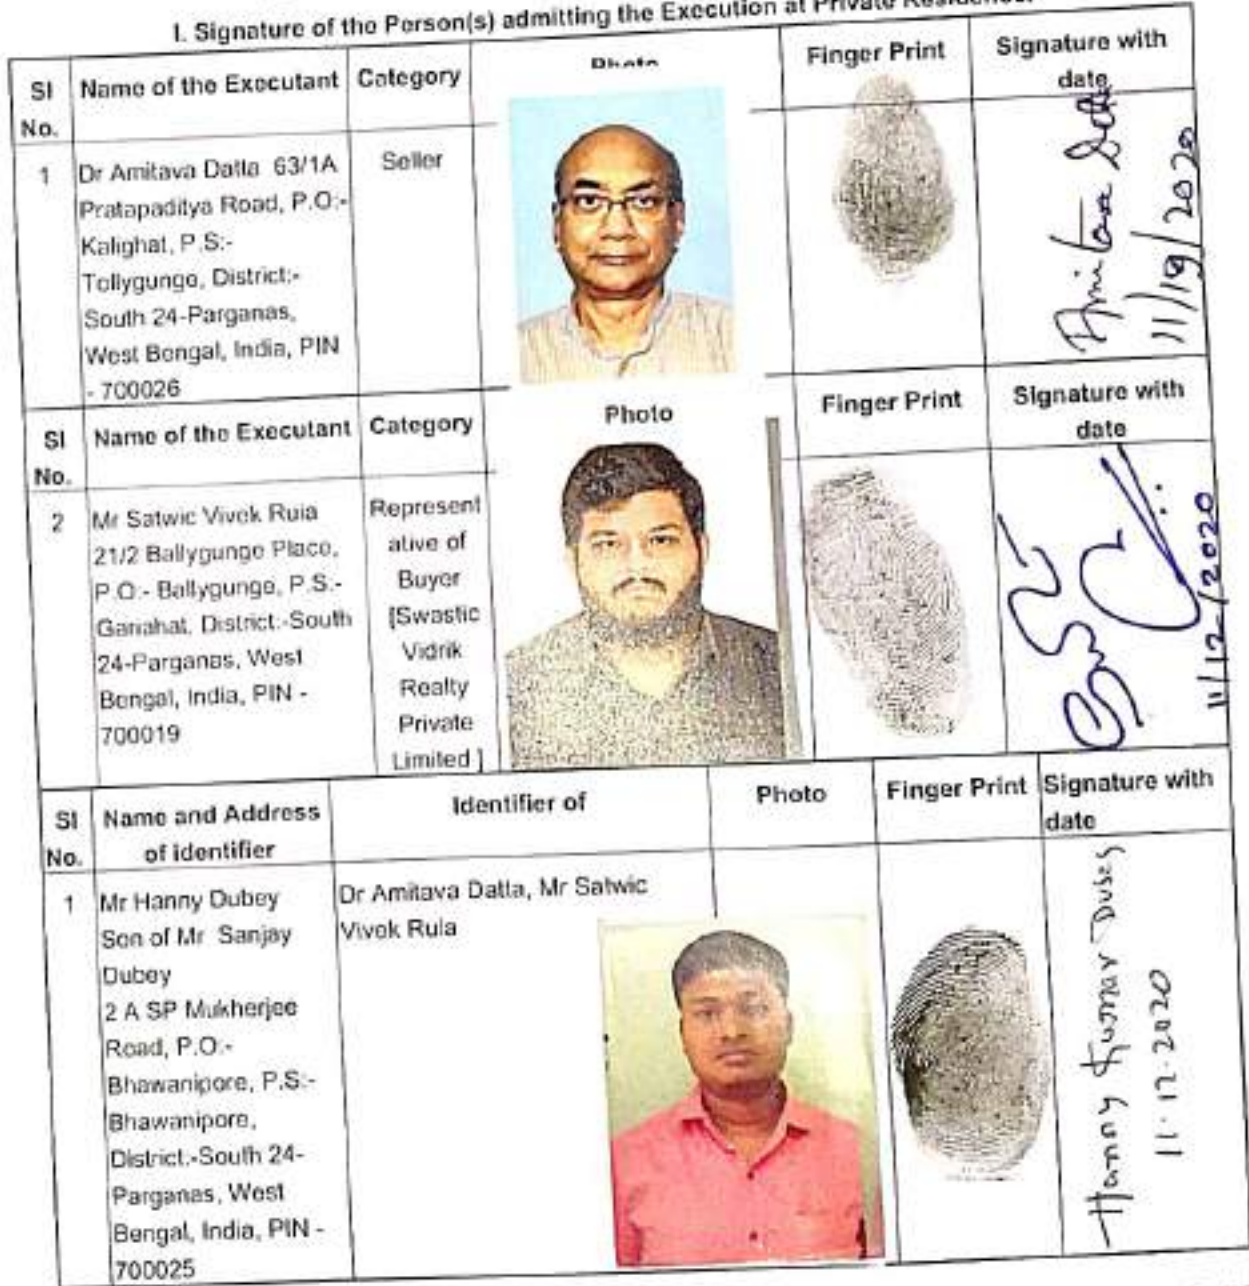 I. Signature of the Person(s) admitting the Execution at Private Residence.
Sl No. Name of the Executant Category Photo Finger Print Signature with date
1 Dr Amitava Datta 63/1A
Pratapaditya Road, P.O:-
Kalighat, P.S:-
Tollygunge, District:-
South 24-Parganas,
West Bengal, India, PIN
- 700026
Seller
Amitava Datta
11/19/2020
Sl No. Name of the Executant Category Photo Finger Print Signature with date
2 Mr Satwic Vivek Ruia
21/2 Ballygunge Place,
P.O:- Ballygunge, P.S:-
Gariahat, District:-South
24-Parganas, West
Bengal, India, PIN -
700019
Represent
ative of
Buyer
[Swastic
Vidrik
Realty
Private
Limited ]
11/12/2020
Sl No. Name and Address of identifier Identifier of Photo Finger Print Signature with date
1 Mr Hanny Dubey
Son of Mr Sanjay
Dubey
2 A SP Mukherjee
Road, P.O:-
Bhawanipore, P.S:-
Bhawanipore,
District:-South 24-
Parganas, West
Bengal, India, PIN -
700025
Dr Amitava Datta, Mr Satwic
Vivek Ruia
Hanny Kumar Dubey
11.12.2020